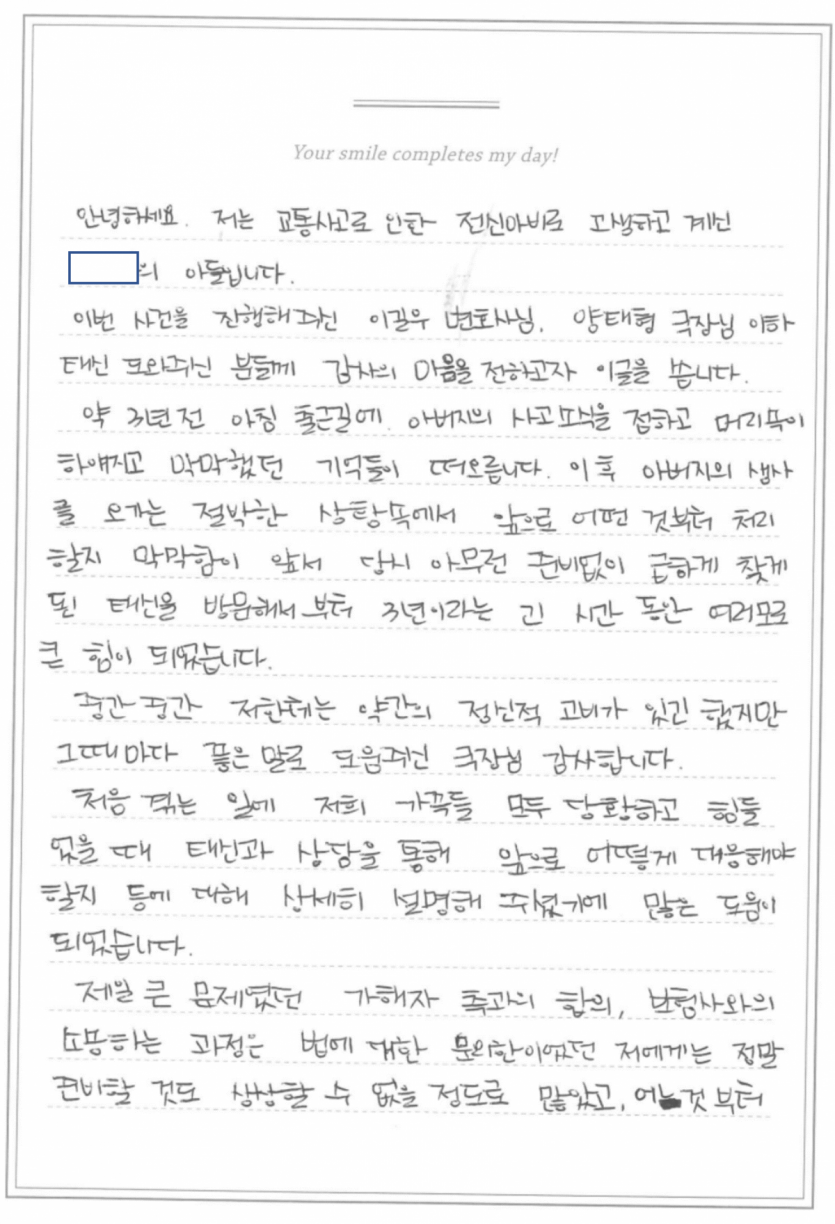 Your smile completes my day!
안녕하세요. 저는 교통사고로 인한 전신마비로 고생하고 계신
의 아들입니다.
이번 사건을 진행해주신 이길우 변호사님, 양태형 국장님 이하
태신 도와주신 분들께 감사의 마음을 전하고자 이글을 씁니다.
약 3년전 아침 출근길에 아버지의 사고소식을 접하고 머리속이
하얘지고 막막했던 기억들이 떠오릅니다. 이후 아버지의 생사
를 오가는 절박한 상황속에서 앞으로 어떤 것부터 처리
할지 막막함이 앞서 당시 아무런 준비없이 급하게 찾게
된 태신을 방문해서부터 3년이라는 긴 시간 동안 여러모로
큰 힘이 되었습니다.
중간중간 저한테는 약간의 정신적 고비가 있긴 했지만
그때마다 좋은 말로 도움주신 국장님 감사합니다.
처음 겪는 일에 저희 가족들 모두 당황하고 힘들
었을 때 태신과 상담을 통해 앞으로 어떻게 대응해야
할지 등에 대해 상세히 설명해 주셨기에 많은 도움이
되었습니다.
제일 큰 문제였던 가해자 측과의 합의, 보험사와의
소통하는 과정은 법에 대한 문외한이었던 저에게는 정말
준비할 것도 상상할 수 없을 정도로 많았고, 어느것부터